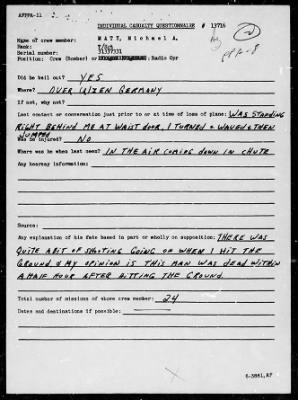 AFPPA-11
INDIVIDUAL CASUALTY QUESTIONNAIRE # 13716
Name of crew member: MATT, Michael A.
Rank: T/Sgt
Serial number: 31337331
Position: Crew (Bomber) or Radio Opr
Did he bail out? YES
Where? OVER ULZEN GERMANY
If not, why not?
Last contact or conversation just prior to or at time of loss of plane: WAS STANDING
RIGHT BEHIND ME AT WAIST DOOR, I TURNED + WAVED + THEN
JUMPED
Was he injured? NO
Where was he when last seen? IN THE AIR COMING DOWN IN CHUTE
Any hearsay information:
Source:
Any explanation of his fate based in part or wholly on supposition: THERE WAS
QUITE A BIT OF SHOOTING GOING OF WHEN I HIT THE
GROUND. + MY OPINION IS THIS MAN WAS DEAD WITHIN
A HALF HOUR AFTER HITTING THE GROUND.
Total number of missions of above crew member: 24
Dates and destinations if possible:
6-3861,AF